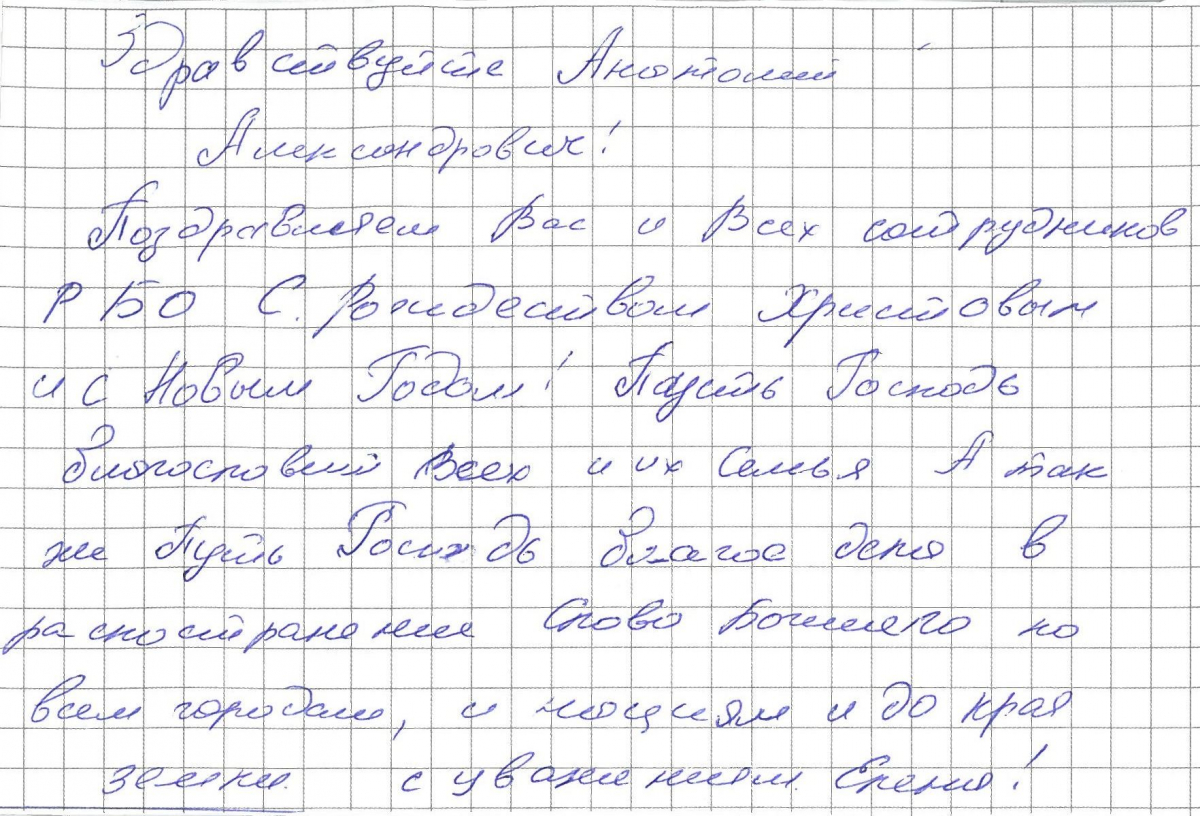 Здравствуйте Анатолий
Александрович!
Поздравляем Вас и Всех сотрудников
РБО С. Рождеством Христовым
и с Новым Годом! Пусть Господь
благословит Всех и их Семья А так
же Пусть Господь благое дело в
распостранении Слово Божьего по
всем городам, и нациям и до края
земли. с уважением. Елена!